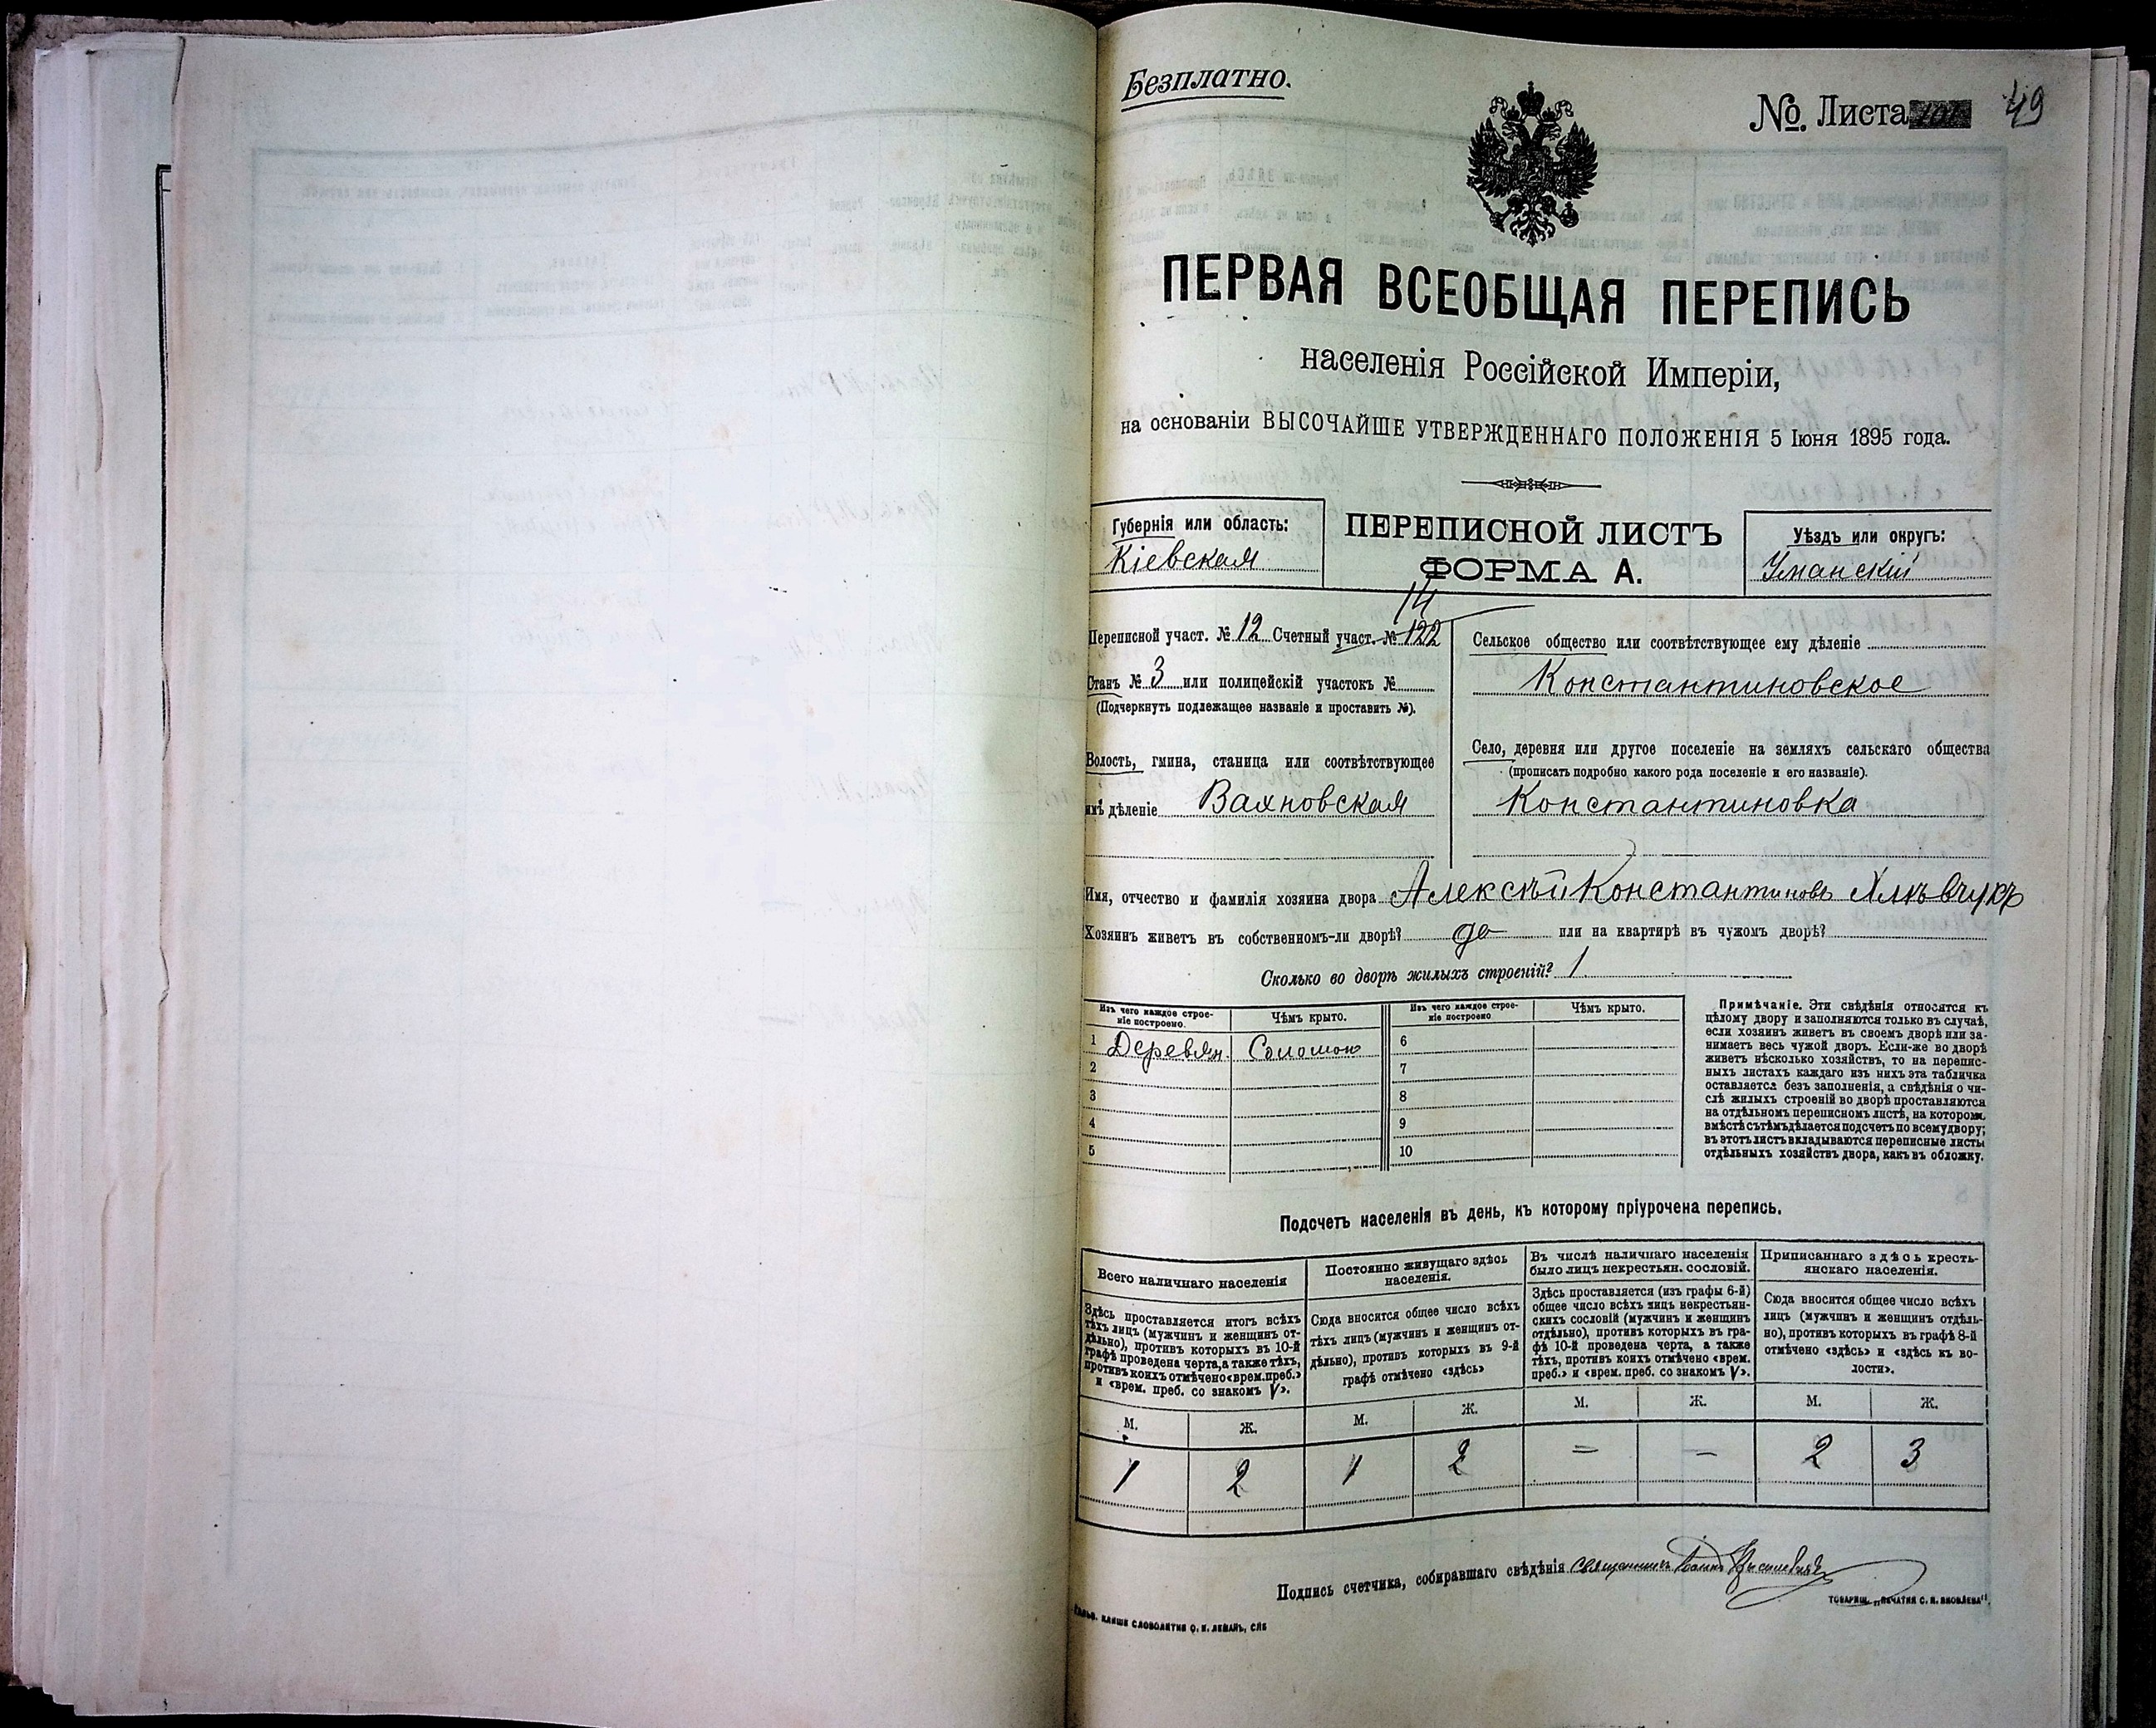 Безплатно.
№ Листа 49
ПЕРВАЯ ВСЕОБЩАЯ ПЕРЕПИСЬ
населенія Россійской Имперіи,
на основаніи ВЫСОЧАЙШЕ УТВЕРЖДЕННАГО ПОЛОЖЕНІЯ 5 Іюня 1895 года.
Губернія или область:
Кіевская
ПЕРЕПИСНОЙ ЛИСТЪ
ФОРМА А.
Уѣздъ или округъ:
Уманскій
14
Переписной участ. № 12 Счетный участ. № 122
Станъ № 3 или полицейскій участокъ №
(Подчеркнуть подлежащее названіе и проставить №).
Волость, гмина, станица или соотвѣтствующее
имъ дѣленіе Вахновская
Сельское общество или соотвѣтствующее ему дѣленіе
Константиновское
Село, деревня или другое поселеніе на земляхъ сельскаго общества
(прописать подробно какого рода поселеніе и его названіе).
Константиновка
Имя, отчество и фамилія хозяина двора Алексѣй Константиновъ
Хозяинъ живетъ въ собственномъ-ли дворѣ? да или на квартирѣ въ чужомъ дворѣ?
Сколько во дворѣ жилыхъ строеній? 1
Изъ чего каждое строе-
ніе построено.
Чѣмъ крыто.
Изъ чего каждое строе-
ніе построено
Чѣмъ крыто.
1 Деревян. Соломою 6
2 7
3 8
4 9
5 10
Примѣчаніе. Эти свѣдѣнія относятся къ
цѣлому двору и заполняются только въ случаѣ,
если хозяинъ живетъ въ своемъ дворѣ или за-
нимаетъ весь чужой дворъ. Если-же во дворѣ
живетъ нѣсколько хозяйствъ, то на перепис-
ныхъ листахъ каждаго изъ нихъ эта табличка
оставляется безъ заполненія, а свѣдѣнія о чи-
слѣ жилыхъ строеній во дворѣ проставляются
на отдѣльномъ переписномъ листѣ, на которомъ
вмѣстѣ съ тѣмъ дѣлается подсчетъ по всему двору;
въ этотъ листъ вкладываются переписные листы
отдѣльныхъ хозяйствъ двора, какъ въ обложку.
Подсчетъ населенія въ день, къ которому пріурочена перепись.
Всего наличнаго населенія
Здѣсь проставляется итогъ всѣхъ
тѣхъ лицъ (мужчинъ и женщинъ от-
дѣльно), противъ которыхъ въ 10-й
графѣ проведена черта, а также тѣхъ,
противъ коихъ отмѣчено «врем. преб.»
и «врем. преб. со знакомъ V».
Постоянно живущаго здѣсь
населенія.
Сюда вносится общее число всѣхъ
тѣхъ лицъ (мужчинъ и женщинъ от-
дѣльно), противъ которыхъ въ 9-й
графѣ отмѣчено «здѣсь»
Въ числѣ наличнаго населенія
было лицъ некрестьян. сословій.
Здѣсь проставляется (изъ графы 6-й)
общее число всѣхъ лицъ некрестьян-
скихъ сословій (мужчинъ и женщинъ
отдѣльно), противъ которыхъ въ гра-
фѣ 10-й проведена черта, а также
тѣхъ, противъ коихъ отмѣчено «врем.
преб.» и «врем. преб. со знакомъ V».
Приписаннаго здѣсь кресть-
янскаго населенія.
Сюда вносится общее число всѣхъ
лицъ (мужчинъ и женщинъ отдѣль-
но), противъ которыхъ въ графѣ 8-й
отмѣчено «здѣсь» и «здѣсь къ во-
лости».
М. Ж. М. Ж. М. Ж. М. Ж.
1 2 1 2 = - 2 3
Подпись счетчика, собиравшаго свѣдѣнія священникъ Іоаннъ
ТОВАРИЩ. „ПЕЧАТНЯ С. П. ЯКОВЛЕВА".
КЛИШЕ СЛОВОЛИТНИ О. И. ЛЕМАНЪ, СПБ